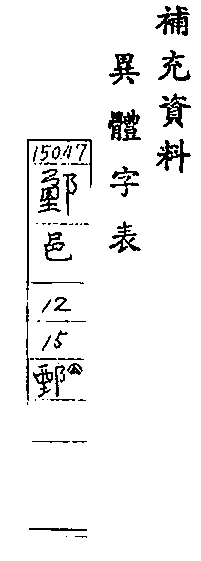 補充資料
異體字表
15047
邑
12
15
鄄